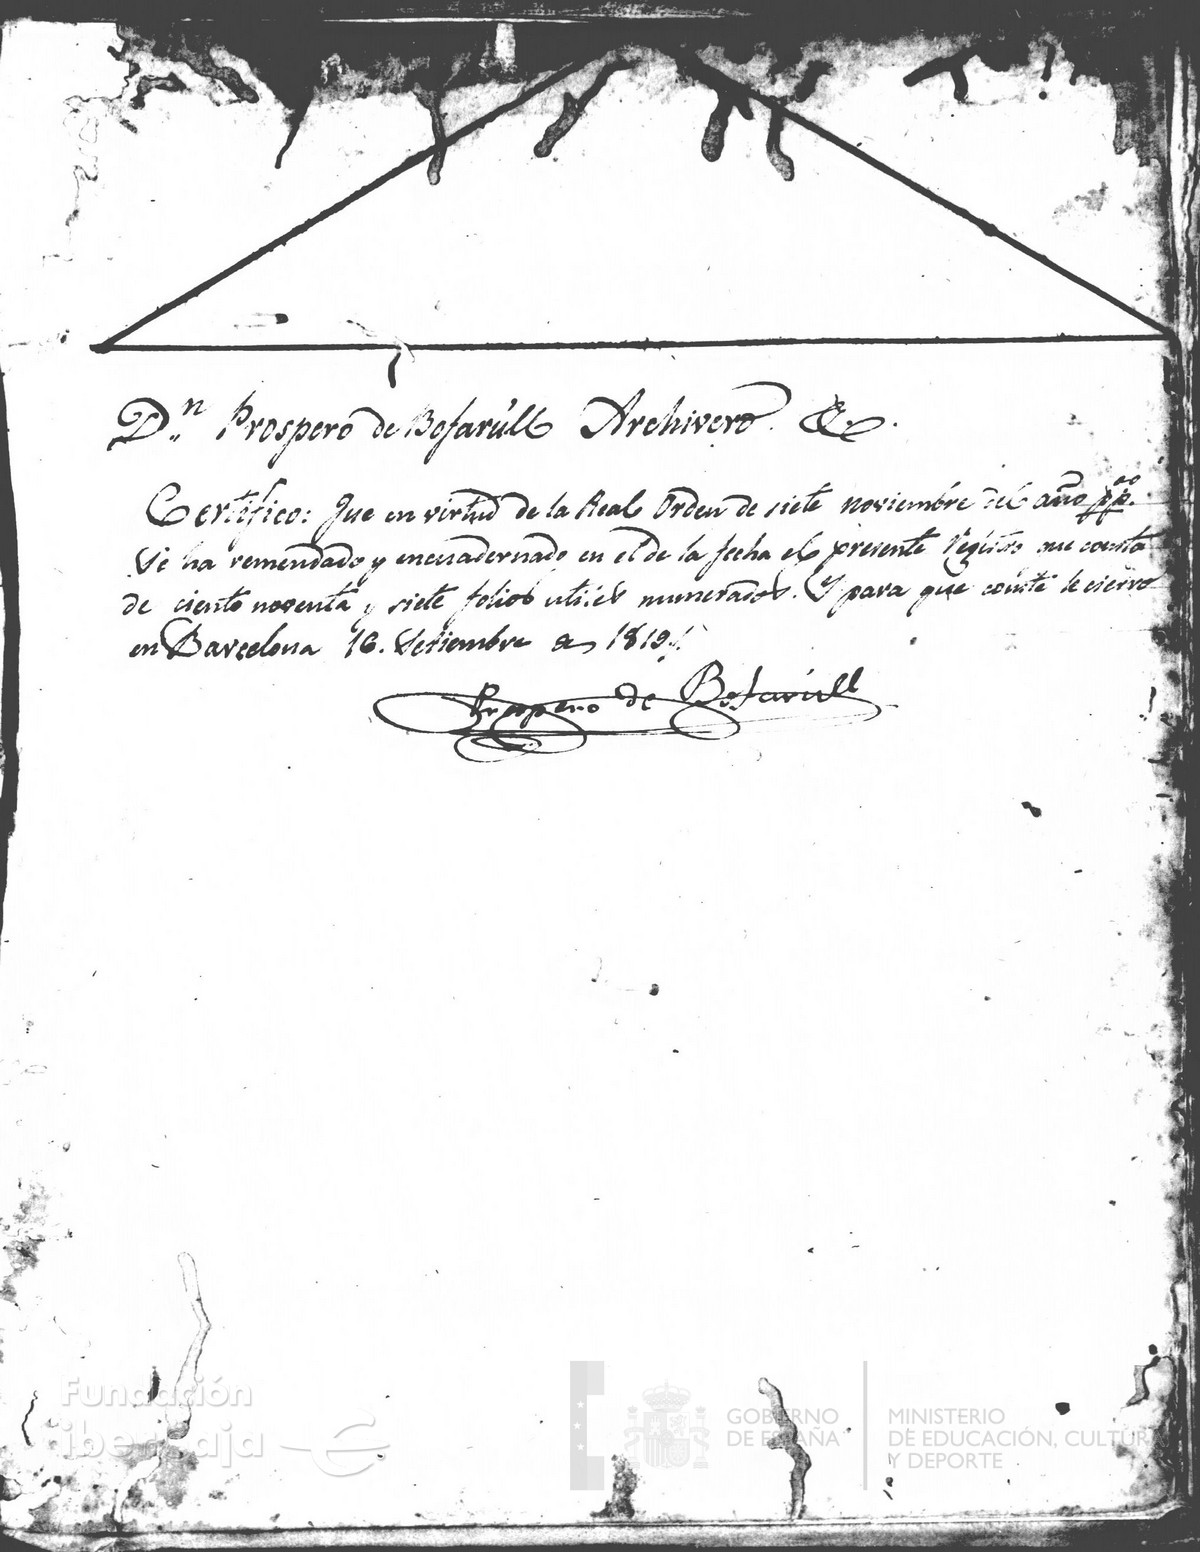 Dn. Prospero de Bofarúll Archivero &c.
Certifico: Que en virtud de la Real Orden de siete noviembre del año pp.do
Se ha remendado y encuadernado en el de la fecha el presente Registro que consta
de ciento noventa y siete folios utiles numerados. Y para que conste le cierro
en Barcelona 16. Setiembre de 1819.
Prospero de Bofarúll
Fundación
iberCaja
GOBIERNO
DE ESPAÑA
MINISTERIO
DE EDUCACIÓN, CULTURA
Y DEPORTE